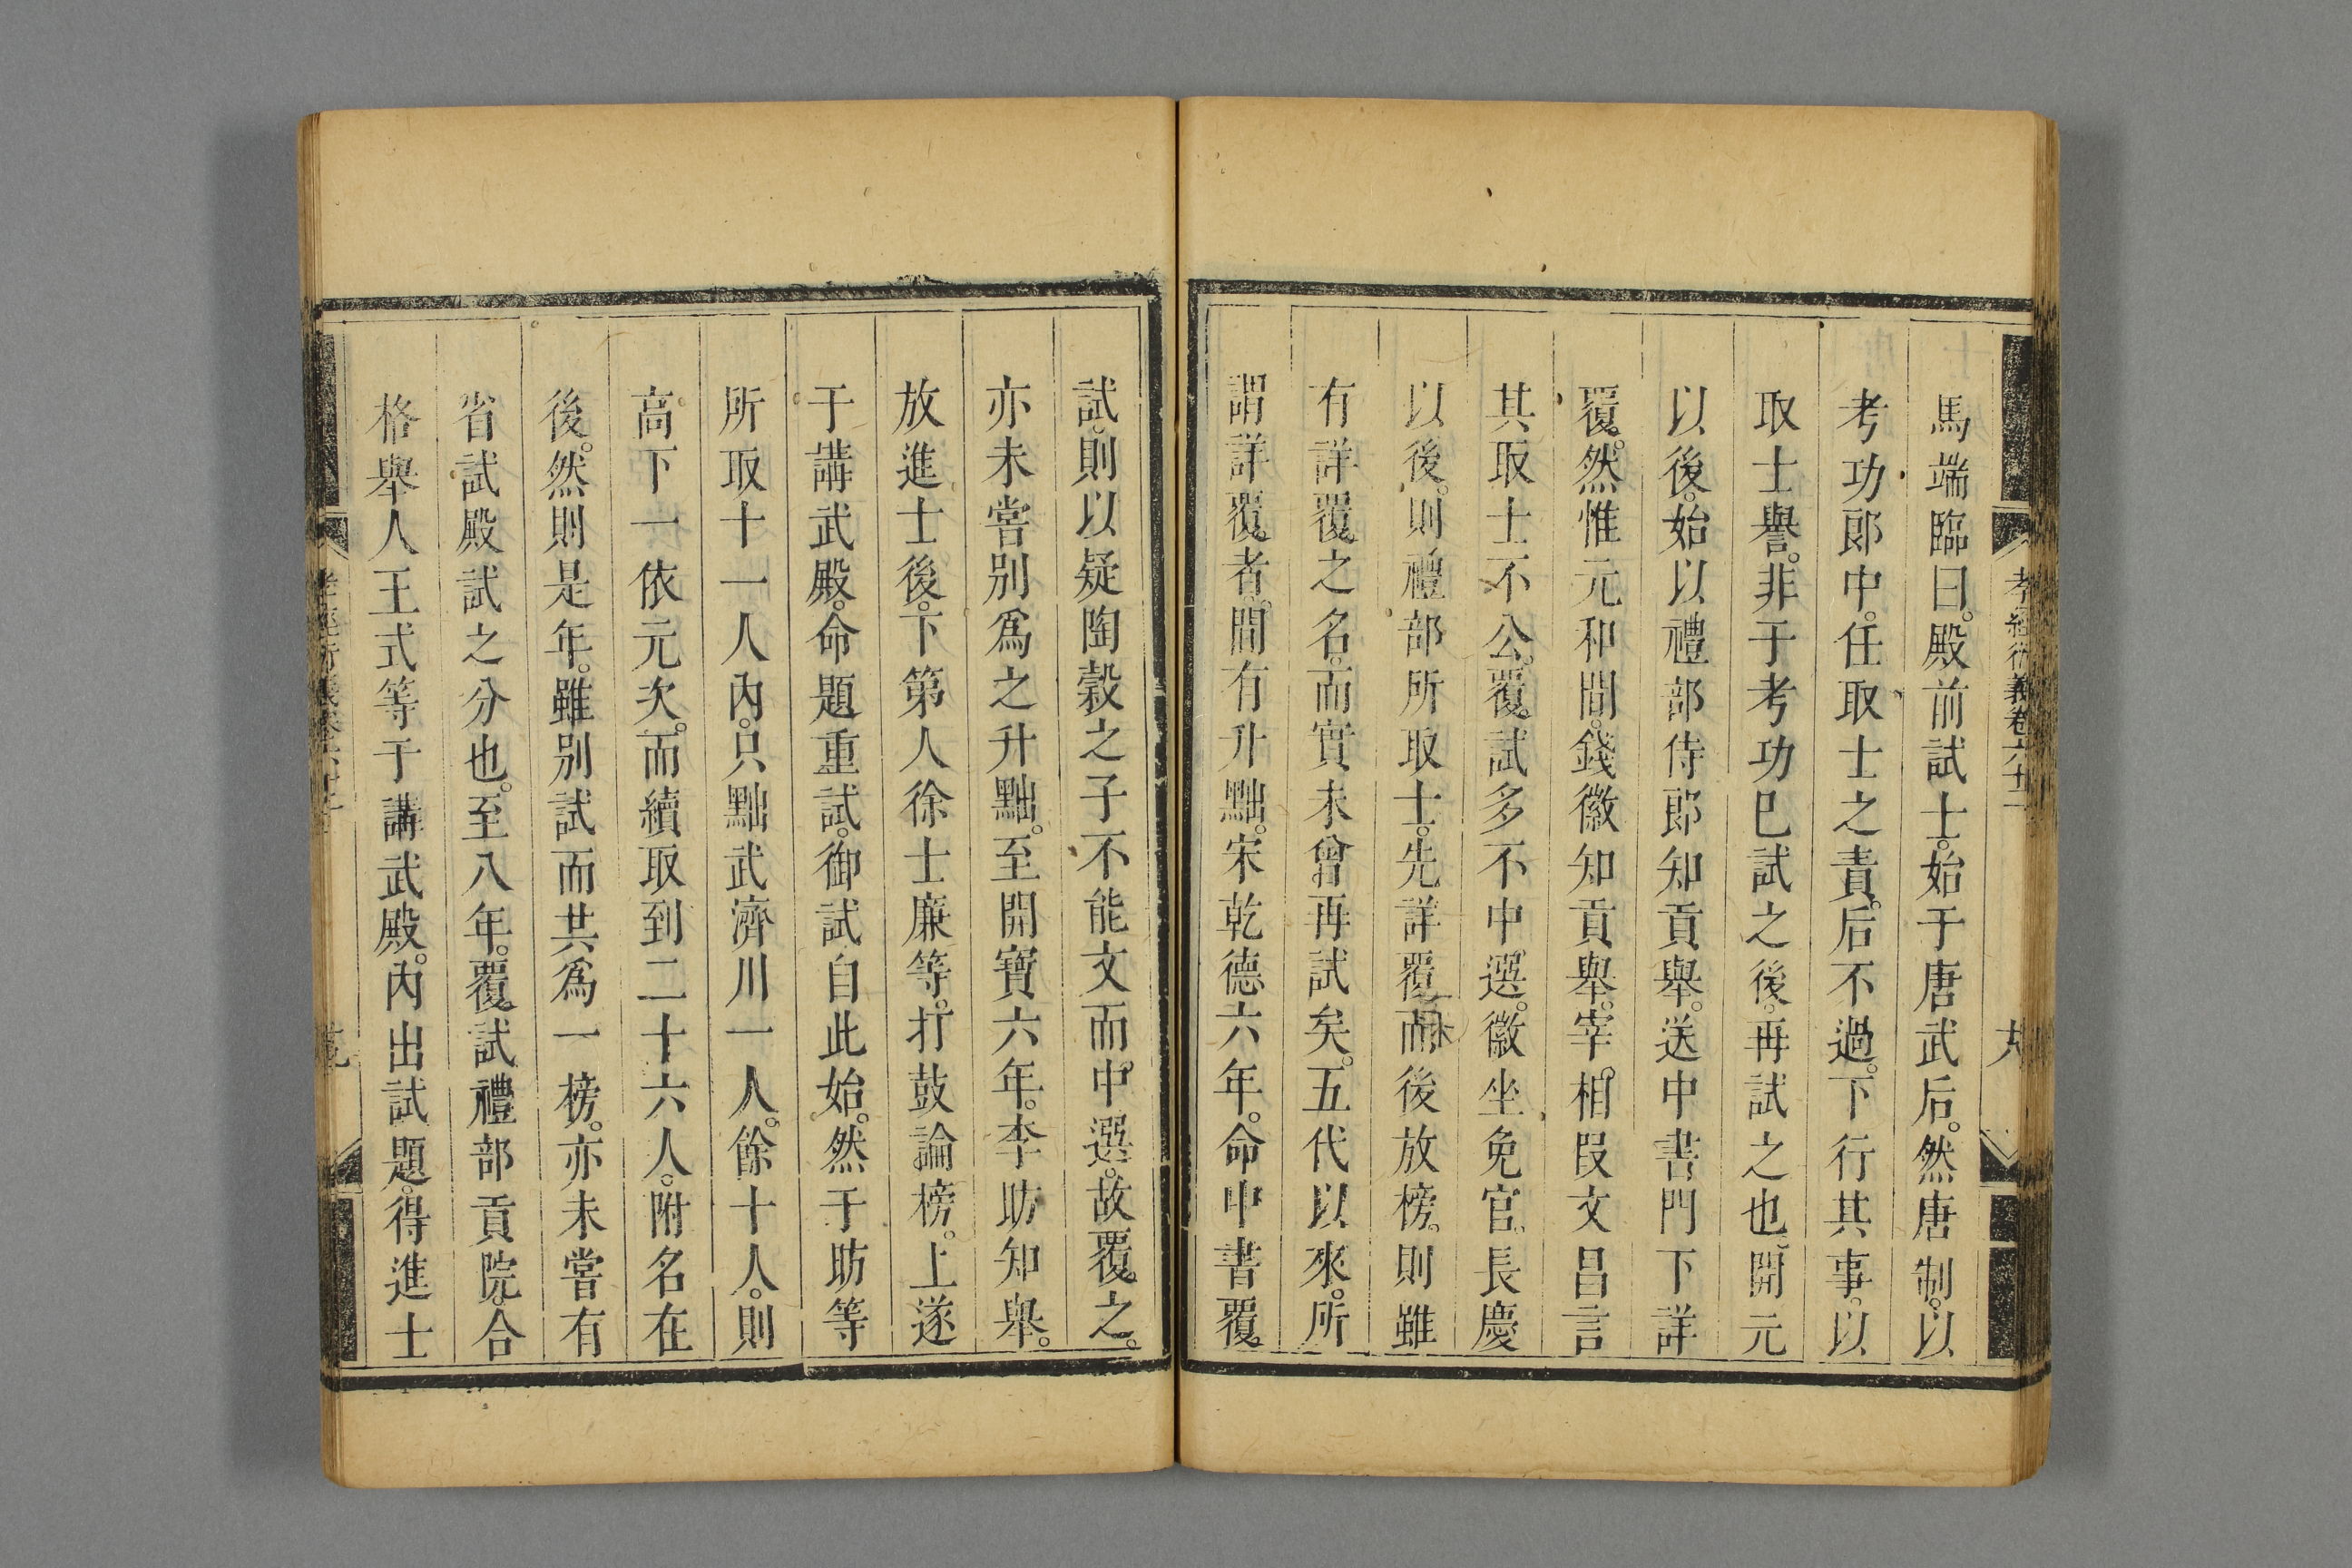 馬端臨曰。殿前試士。始于唐武后。然唐制。以
考功郎中。任取士之責。后不過。下行其事。以
取士譽。非于考功巳試之後。再試之也。開元
以後。始以禮部侍郎知貢舉。送中書門下詳
覆。然惟元和間。錢徽知貢舉。宰相段文昌言
其取士不公。覆試多不中選。徽坐免官。長慶
以後。則禮部所取士。先詳覆而後放榜。則雖
有詳覆之名。而實未曾再試矣。五代以來。所
謂詳覆者。間有升黜。宋乾德六年。命中書覆
試。則以疑陶穀之子不能文而中選。故覆之。
亦未嘗別爲之升黜。至開寶六年。李昉知舉。
放進士後。下第人徐士廉等。打鼓論榜。上遂
于講武殿。命題重試。御試自此始。然于昉等
所取十一人內。只黜武濟川一人。餘十人。則
高下一依元次。而續取到二十六人。附名在
後。然則是年。雖別試而共爲一榜。亦未嘗有
省試殿試之分也。至八年。覆試禮部貢院。合
格舉人王式等于講武殿。內出試題。得進士